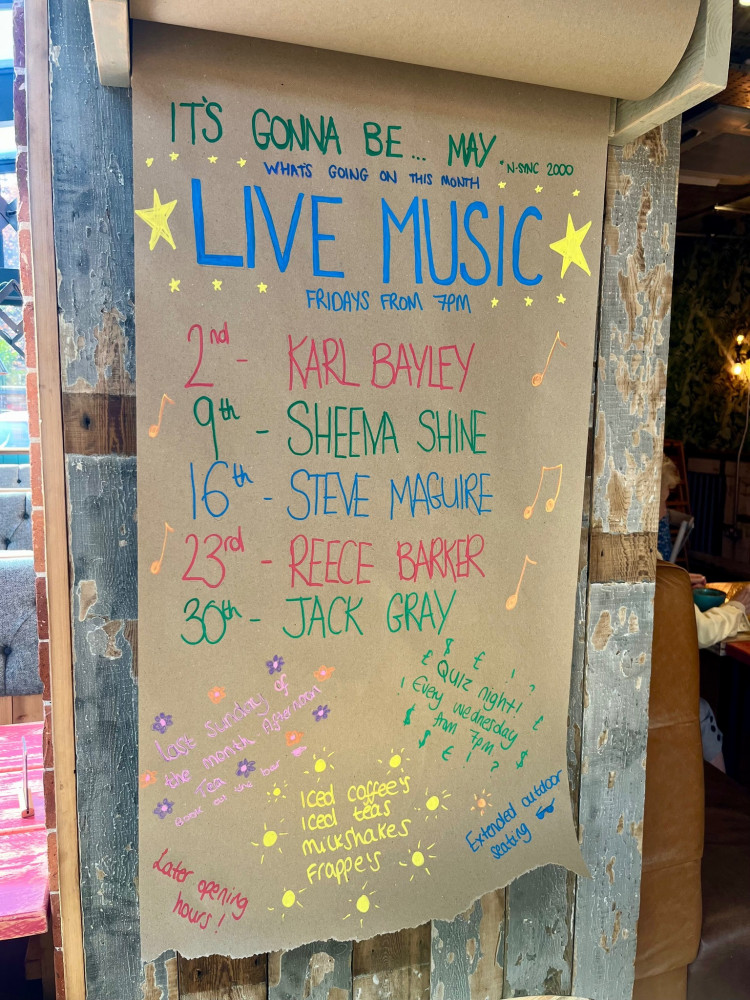 IT'S GONNA BE... MAY
*N-SYNC 2000
WHAT'S GOING ON THIS MONTH
LIVE MUSIC
FRIDAYS FROM 7PM
2nd - KARL BAYLEY
9th - SHEENA SHINE
16th - STEVE MAGUIRE
23rd - REECE BARKER
30th - JACK GRAY
Last Sunday of
the month Afternoon
Tea
Book at the bar
$ £ ! ?
£ Quiz night! £
! Every wednesday
$ from 7pm $
£ ! ?
Iced coffee's
Iced teas
milkshakes
frappe's
Extended outdoor
seating
Later opening
hours!